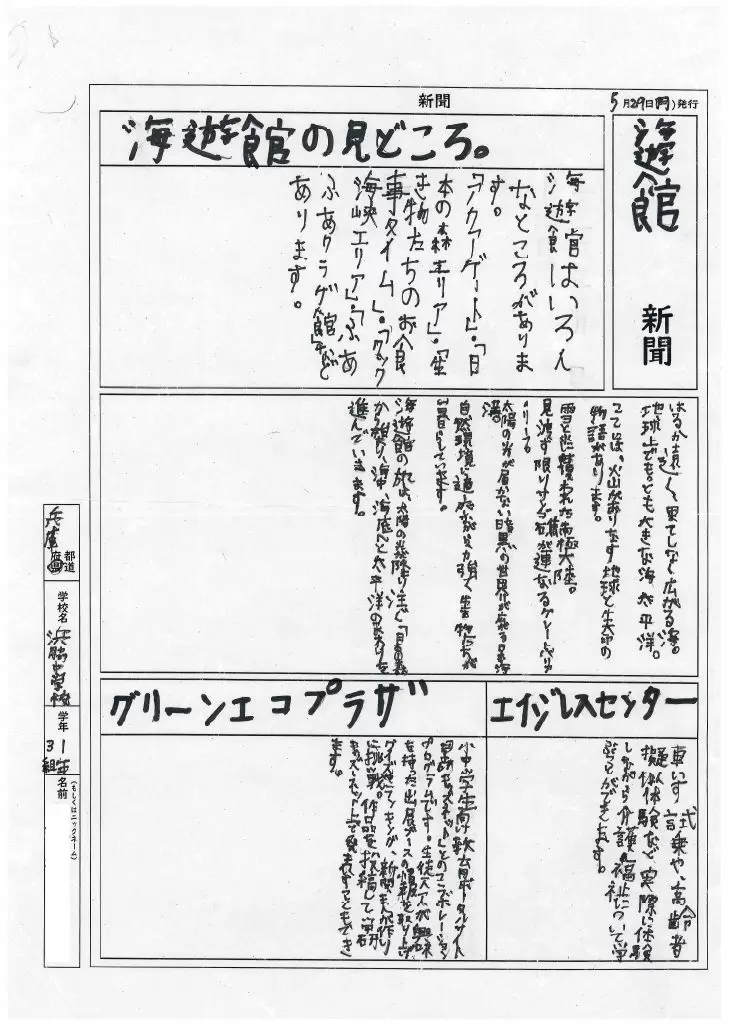 新聞
5月29日(月)発行
海遊館
新聞
海遊館の見どころ。
海遊館はいろん
なところがありま
す。
「アクアゲート」・「日
本の森エリア」・「生
き物たちのお食
事タイム」・「クック
海峡エリア」・「ふあ
ふあクラゲ館」など
あります。
はるか遠く果てしなく広がる海。
地球上でもっとも大きな海、太平洋。
ここには、火山がおりなす地球と生命の
物語があります。
雪と氷に覆われた南極大陸。
見渡す限りサンゴ礁が連なるグレート・バリ
ア・リーフ。
太陽の光が届かない暗黒の世界が広がる日本海
溝。
自然環境に適応しながら力強く生きる生物たちが
海遊館の旅は、太陽の光が降り注ぐ「日本の森」
から始まり、海中、海底へと太平洋の
進んでいきます。
エイジレスセンター
車いす試乗や、高齢者
疑似体験など実際に体験
しながら介護や福祉について学
ぶことができます。
グリーンエコプラザ
小中学生向け教育ポータルサイト
とのコラボレーション
プログラムです。生徒一人一人が興味
を持った出展ブースの情報を取り上げ
クイズやランキング、新聞まんが作り
に挑戦。作品を投稿して
キッズネット上で発表することもでき
ます。
兵庫
都道
府県
学校名
浜脇中学校
学年
1年
3組
名前
(もしくはニックネーム)